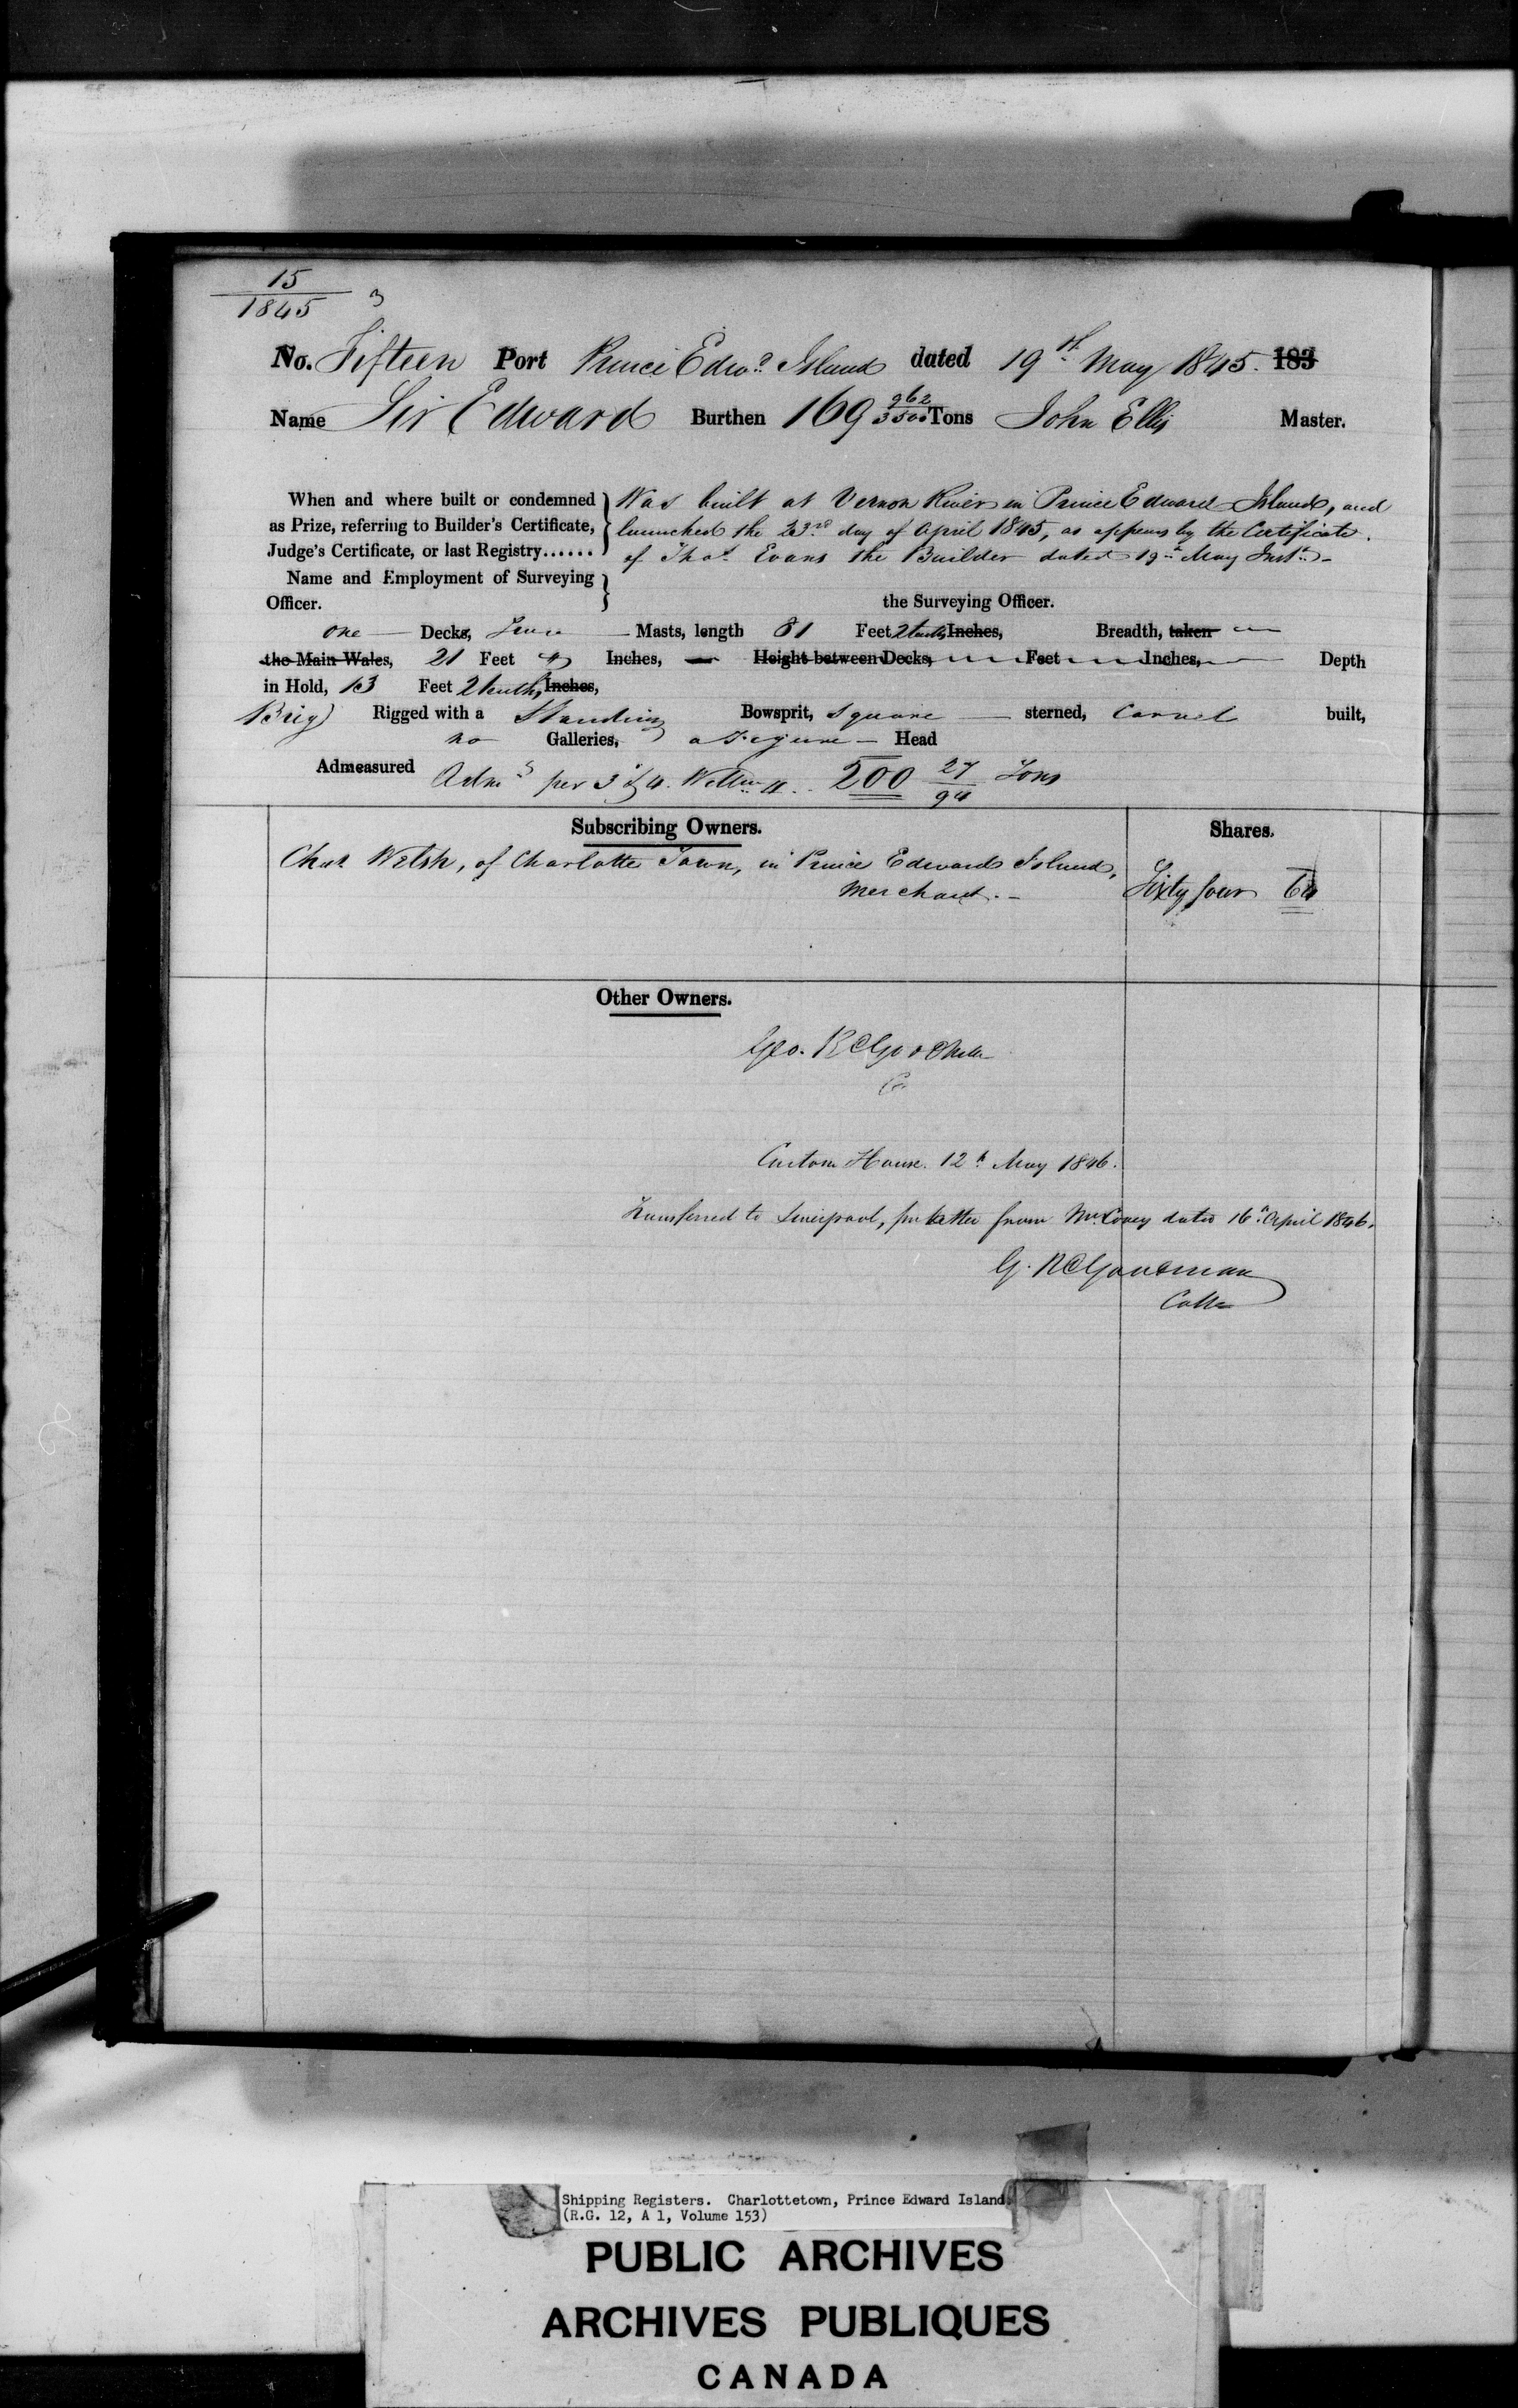 15
1845 3
No. Fifteen Port Prince Edwd Island dated 19th May 1845. 183
Name Sir Edward Burthen 169 962/3500 Tons John Ellis Master.
When and where built or condemned as Prize, referring to Builder's Certificate, Judge's Certificate, or last Registry......
Was built at Vernon River in Prince Edward Island, and
launched the 23rd day of April 1845, as appears by the Certificate
of Thos Evans the Builder dated 19th May Inst. -
Name and Employment of Surveying
Officer. the Surveying Officer.
one Decks, Masts, length 81 Feet 2 tenths Inches, Breadth, taken
the Main Wales, 21 Feet Inches, Height between Decks, Feet Inches, Depth
in Hold, 13 Feet 2 tenths, Inches,
Brig Rigged with a Standing Bowsprit, Square sterned, Carvel built,
no Galleries, a Figure Head
Admeasured Adms per 3 & 4. Willm 4. 200 27/94 Tons
Subscribing Owners. Shares.
Chas Welsh, of Charlotte Town, in Prince Edward Island,
Merchant. - Sixty four 64
Other Owners.
Geo. R Goodman
Custom House. 12th May 1846.
Transferred to Liverpool, per letter from Mr. Covey dated 16th April 1846.
G. R Goodman
Collr
Shipping Registers. Charlottetown, Prince Edward Island.
(R.G. 12, A 1, Volume 153)
PUBLIC ARCHIVES
ARCHIVES PUBLIQUES
CANADA